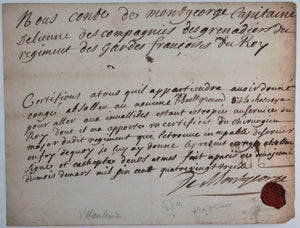 Nous conte de montgeorge Capitaine
de lune des compagnies des grenadiers du
regiment des gardes françoises du Roy
Certifions a tous quil appartiendra avoir donné
congé absollu au nommé
pour aller aux invallides estant au service du
Roy dont il ma apporté certifficat du chirurgien
major dudit regiment que le trouve incapable de servir
en foy de quoy je luy ay donné le present congé absollu
signé et cacheté de nos armes fait a paris ce
du mois de mars mil six cent quatre vingt
de Montgeorge